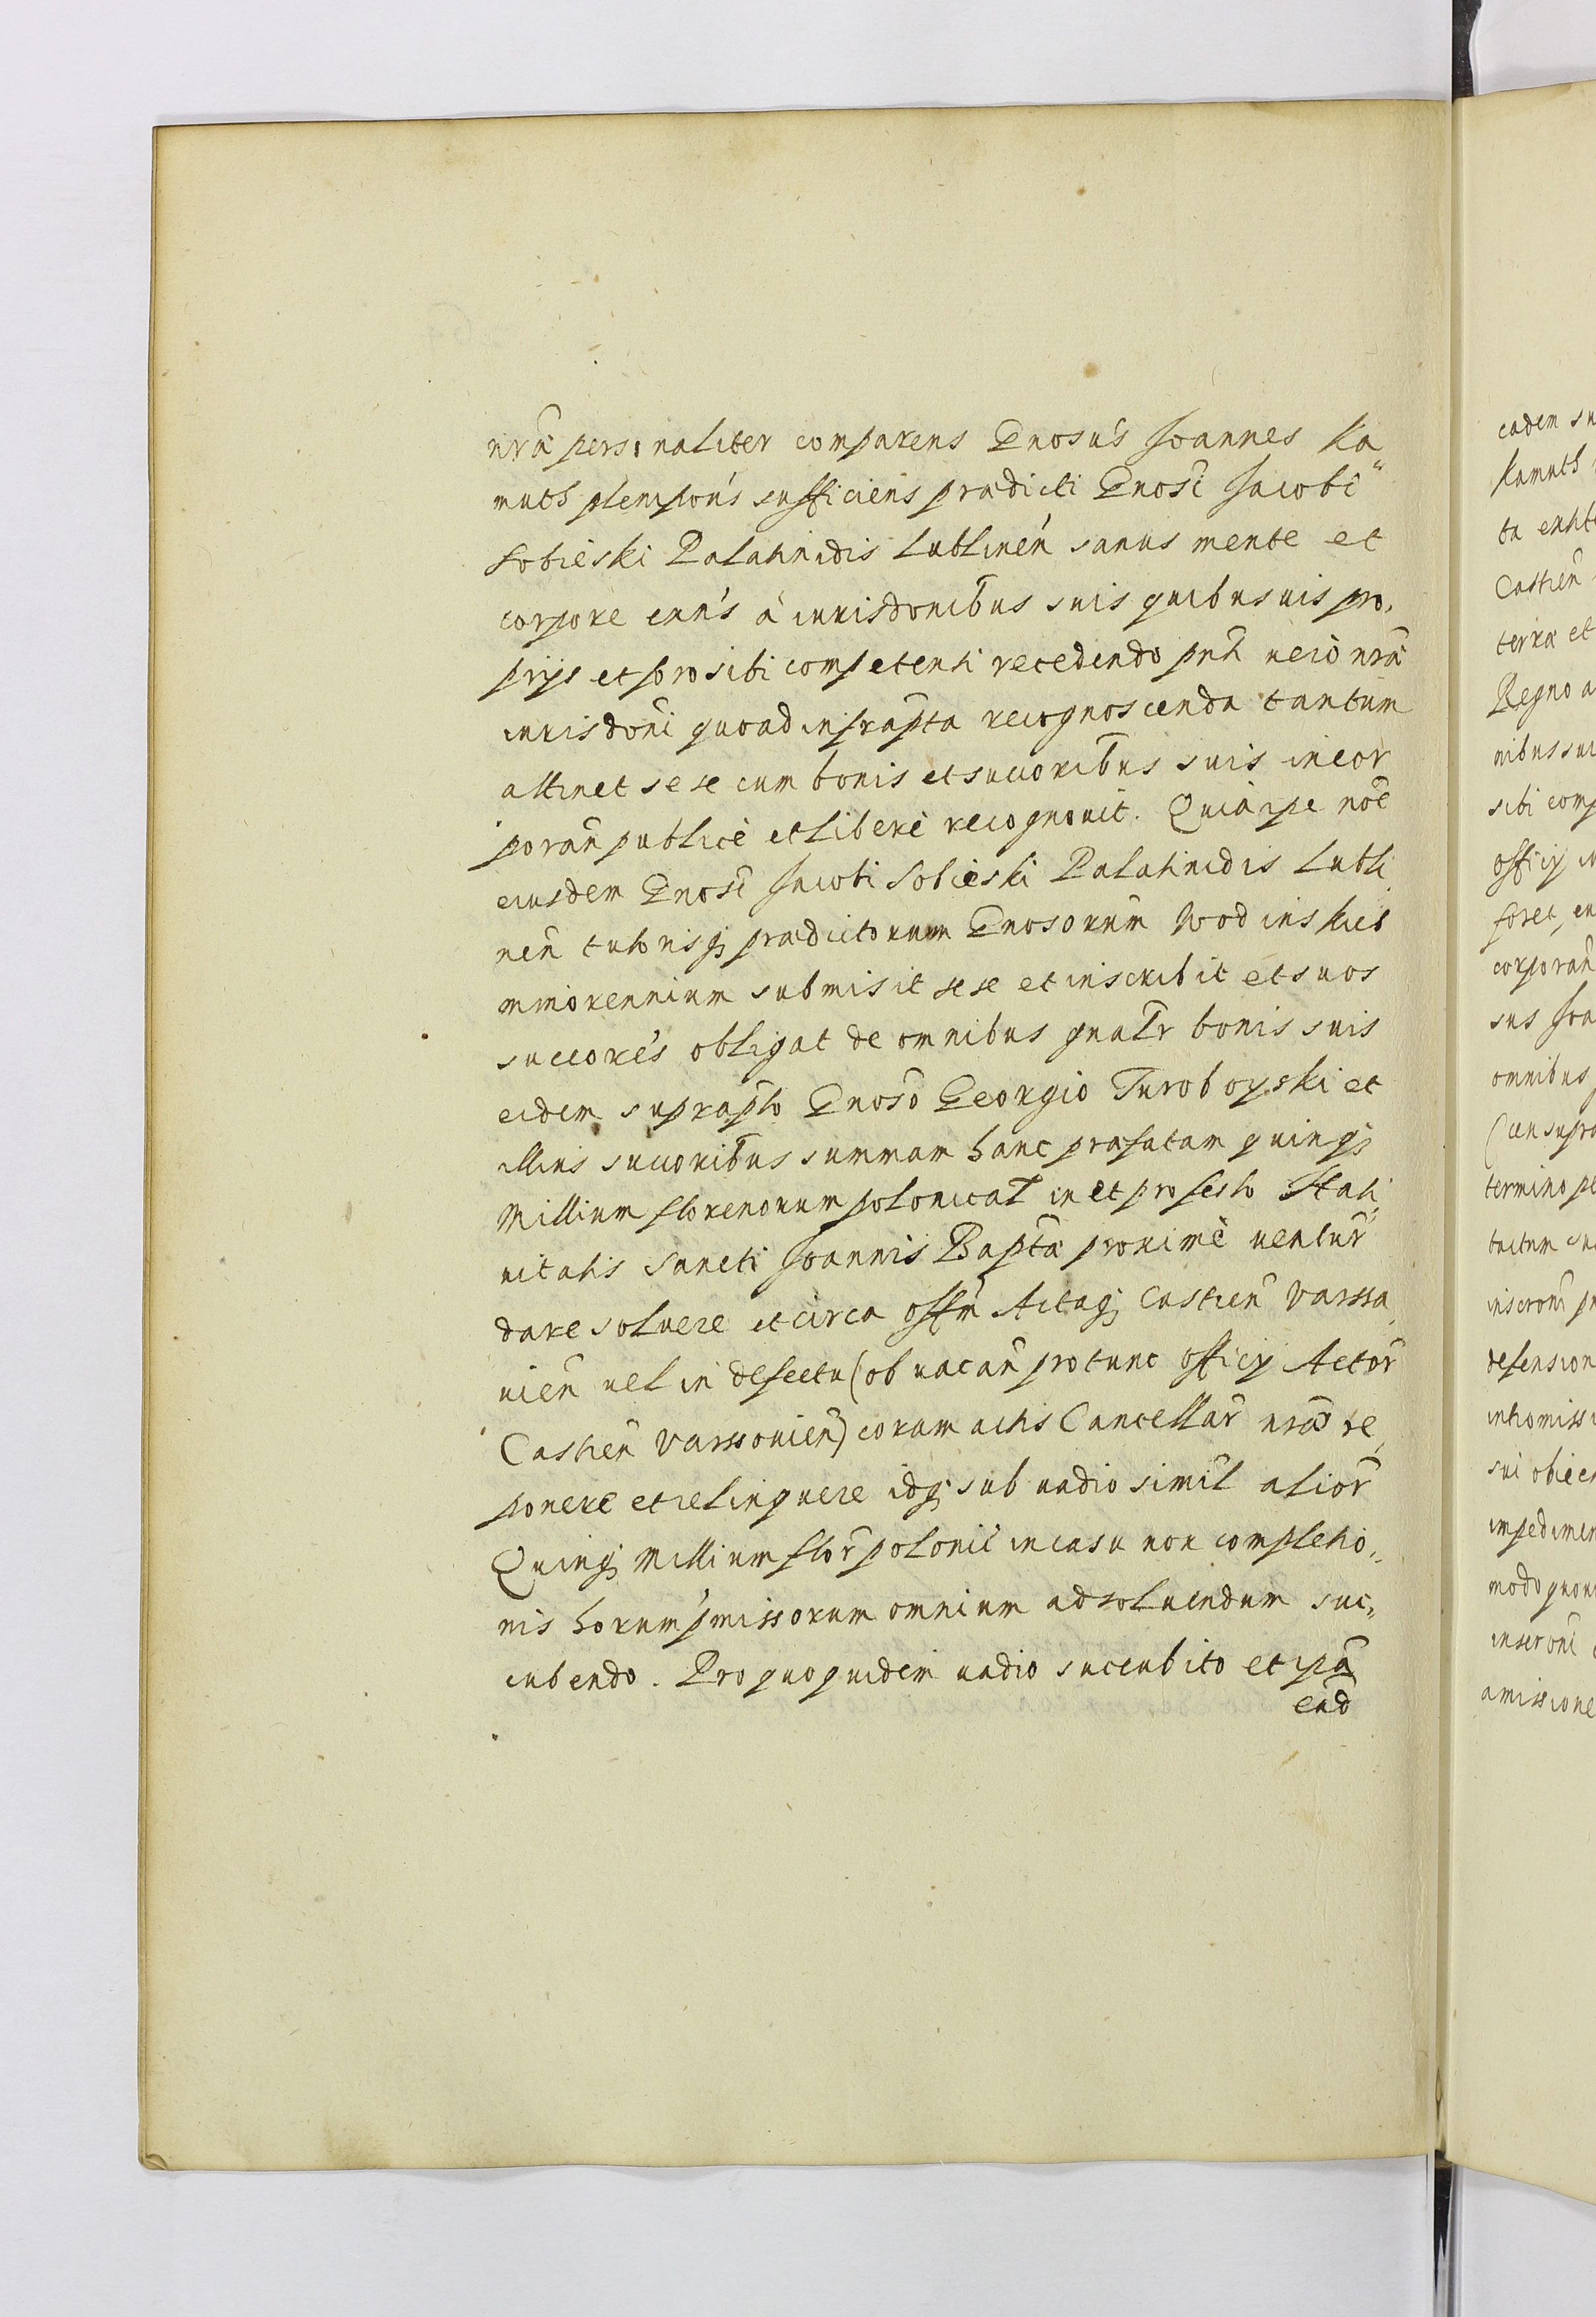 nrã personaliter comparens Gnosus Joannes Ka
muth plenipons sufficiens prædicti Gnosi Jacobi
Sobieski Palatinidis Lublinen sanus mente et
corpore exns à iurisdonibus suis quibusuis pro,
prijs et foro sibi competenti recedendo pnti uero nræ
iurisdoni quoad infrapta recognoscenda tantum
attinet sese cum bonis et succoribus suis incor
poran publicè et liberè recognouit. Quia ipse noe
eiusdem Gnosi Jacobi Sobieski Palatinidis Lubli
nen tutorisq; prædictorum Gnosorum Wodinskich
minorennium submisit sese et inscribit et suos
succores obligat de omnibus gnalr bonis suis
eidem suprapto Gnoso Georgio Turoboyski et
illius succoribus summam hanc præfatam quinq;
Millium florenorum polonical in et pro festo Nati
uitatis Sancti Joannis Baptæ proximè uentur
dare soluere et circa offm Actaq; Castren Varssa,
uien uel in defectu (ob uacan protunc officij Actor
Castren Varssouien) coram actis Cancellar nræ re,
ponere et relinquere idq; sub uadio simil alior
Quinq; Millium flor polonic in casu non completio,,
nis horum pmissorum omnium ad soluendum suc,,
cubendo. Pro quo quidem uadio succubito et ipa
ead
eadem su
Kamuth
ta exhib
Castren
terræ et
Regno a
nibus sui
sibi comp
officij
foret, ex
corporan
sus Joa
omnibus
(uen supra
termino pe
tuitum
inscroni
defension
intromissi
sui obiec
impedimen
modo quou
inscroni
amissione